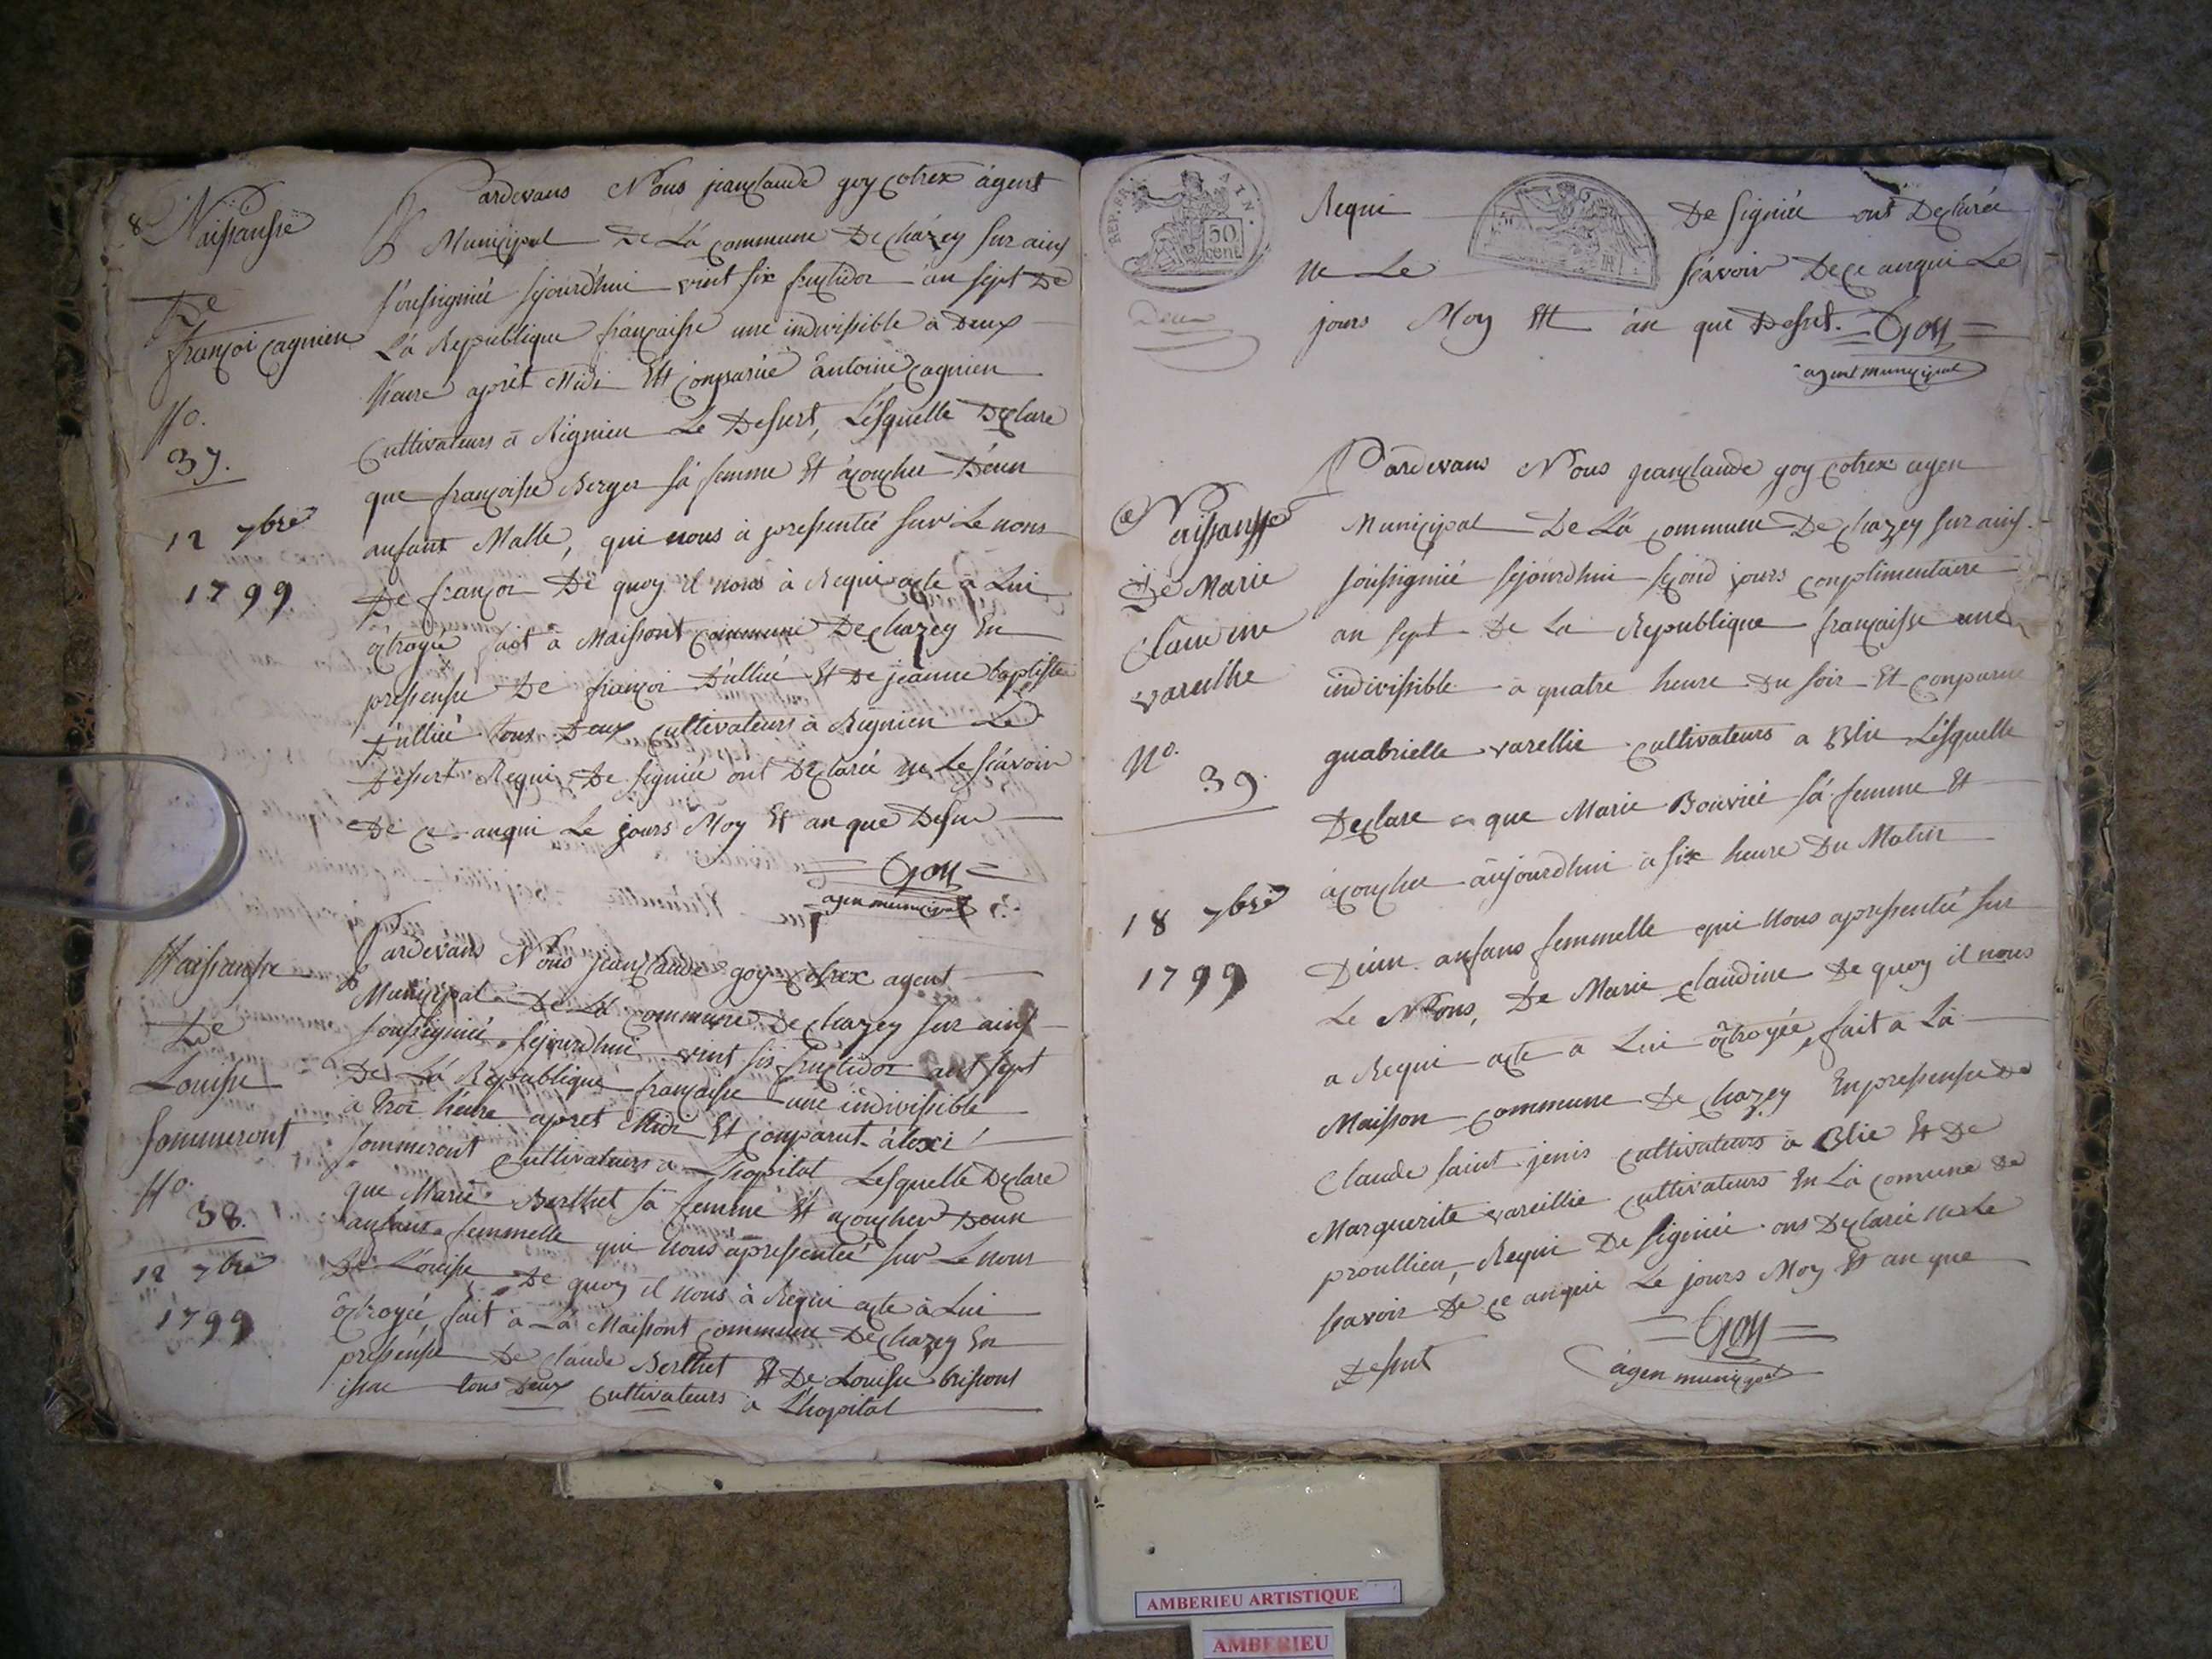 8
Naissansse
De
françoi cagnien
No.
37.
12 7bre
1799
Pardevans Nous jeanclaude goy cotrex agent
Municipal De La commune De chazey sur ains
soussigniée sejourdhui vint six fructidor an sept De
La Republique françaisse une indivissible a Deux
heure apret Midi Et comparue antoine cagnien
Cultivateurs a Rignieu Le Desert, Lesquelle Declare
que françoisse Berger sa femme Et acouchee Deun
anfant Malle, qui nous a pressentée sur Le nons
De françoi De quoy il nous a Requi acte a Lui
octroyée fait a Maissont commune De chazey En
pressensse De françoi Dulliée Et De jeanne baptiste
Dulliée tous Deux cultivateurs a Rignieu Le
Desert Requi De signiée ont Declarée ne Le scavoir
De ce anqui Le jours Moy Et an que Desu
Goy
agen municipal
Naissansse
De
Louisse
sommeront
No.
38.
12 7bre
1799
Pardevans Nous jeanclaude goy cotrex agent
Municipal De La commune De chazey sur ains
soussigniée sejourdhui vint six fructidor ant sept
De La Republique française une indivissible
a troi heure apret Midi Et comparut alexi
sommeront cultivateurs a Lhopital Lesquelle Declare
que Marie Berthet sa femme Et acouchee Deun
anfans femmelle qui nous apressentée sur Le nons
De Louisse De quoy il nous a Requi acte a Lui
octroyée, fait a La Maissont commune De chazey En
pressensse De claude Berthet Et De Louisse brissont
tous Deux cultivateurs a Lhopital
REP. FRA
50
cent
Requi De signiée ont Declarée
ne Le scavoir De ce anqui Le
jours Moy Et an que Desut. Goy
agent municipal
Naissansse
De Marie
Claudine
varellie
No.
39.
18 7bre
1799
Pardevans Nous jeanclaude goy cotrex agen
Municipal De La commune De chazey sur ains
soussigniée sejourdhui second jours complimentaire
an sept De La Republique françaisse une
indivissible a quatre heure Du soir Et comparue
guabrielle varellie cultivateurs a Blie Lesquelle
Declare que Marie Bouviée sa femme Et
acouchee aujourdhui a six heure Du Matin
Deun anfans femmelle qui nous apressentée sur
Le Nons, De Marie claudine De quoy il nous
a Requi acte a Lui octroyée, fait a La
Maisson commune De chazey En pressensse De
Claude saint jenis cultivateurs a Blie Et De
Marguerite vareillie cultivateurs En La comune De
proullieu, Requi De signiée ons Declarée ne Le
scavoir De ce anqui Le jours Moy Et an que
Desut
Goy
agen municipal
AMBERIEU ARTISTIQUE
AMBERIEU